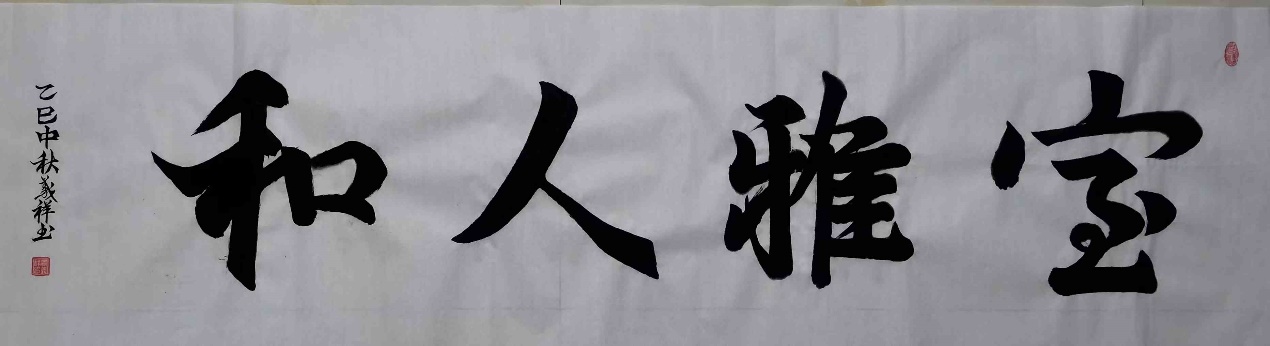 室雅人和
乙巳中秋義祥书